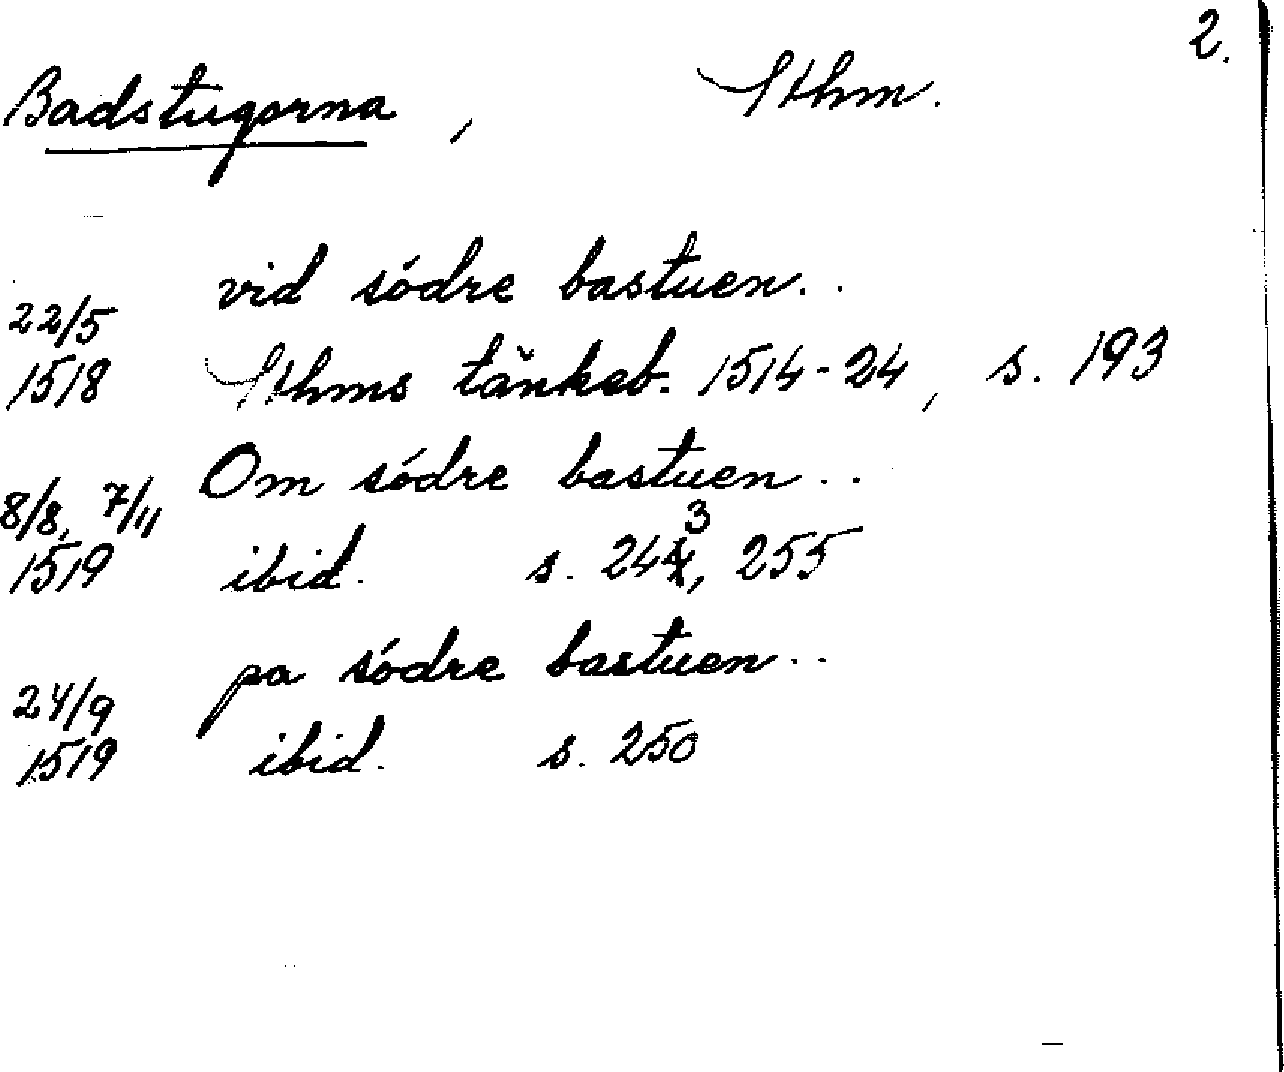 2.
Badstugorna, Sthm.
vid södre bastuen..
22/5
1518 Sthms tänkeb. 1514-24, s. 193
Om södre bastuen..
8/8, 7/11
1519 ibid. s. 243, 255
pa södre bastuen..
24/9
1519 ibid. s. 250